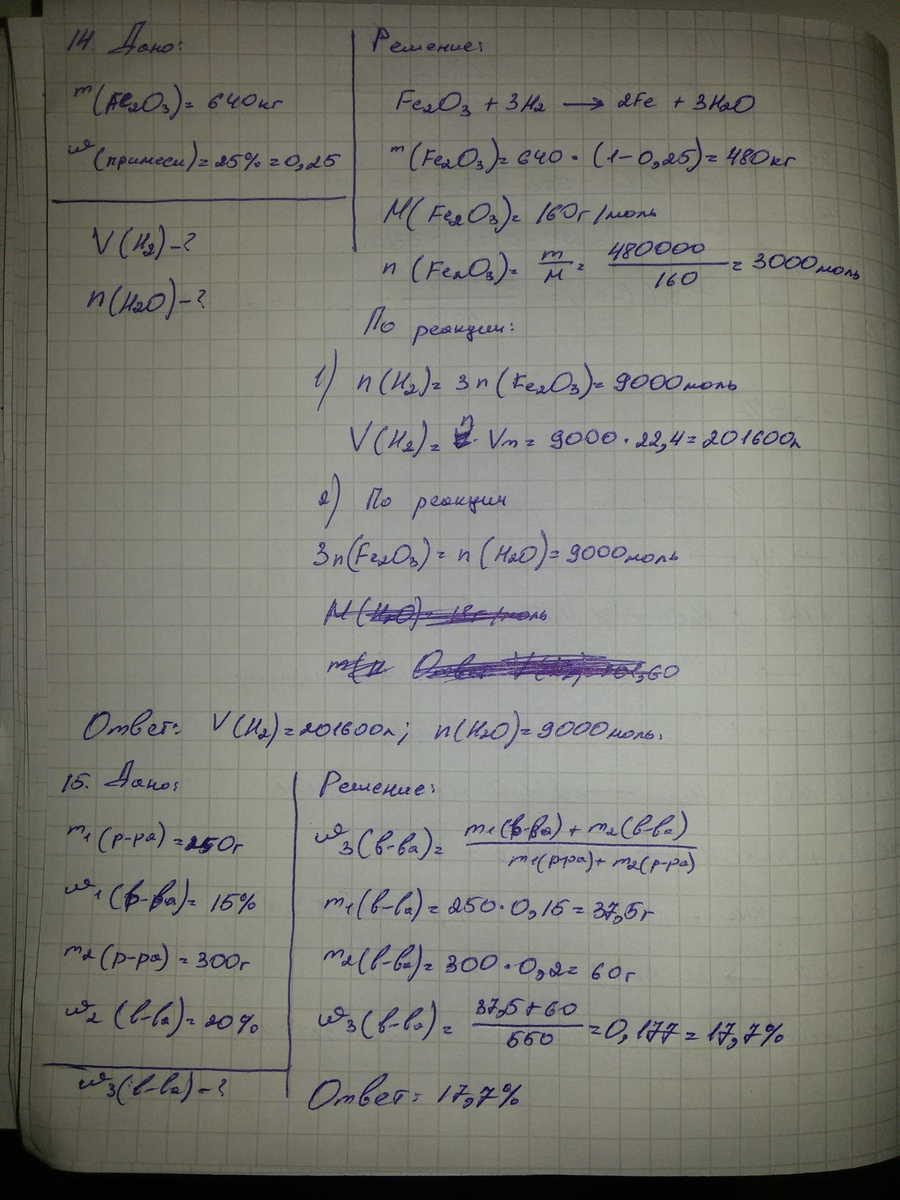 14. Дано:
m(Fe2O3)= 640кг
ω(примеси)=25%=0,25
V(H2)-?
n(H2O)-?
Решение:
Fe2O3 + 3H2 → 2Fe + 3H2O
m(Fe2O3)=640·(1-0,25)=480кг
M(Fe2O3)= 160г/моль
n(Fe2O3)= m/M = 480000/160 = 3000моль
По реакции:
1) n(H2)= 3n(Fe2O3)= 9000моль
V(H2)= n·Vm = 9000·22,4=201600л
2) По реакции
3n(Fe2O3)= n(H2O)=9000моль
M(H2O)=18г/моль
Ответ: V(H2)=201600л; n(H2O)=9000моль.
15. Дано:
m1(р-ра)=250г
ω1(в-ва)= 15%
m2(р-ра)=300г
ω2(в-ва)=20%
ω3(в-ва)-?
Решение:
ω3(в-ва)= m1(в-ва)+m2(в-ва)/m1(р-ра)+m2(р-ра)
m1(в-ва)=250·0,15=37,5г
m2(в-ва)=300·0,2=60г
ω3(в-ва)= 37,5+60/550 =0,177=17,7%
Ответ: 17,7%